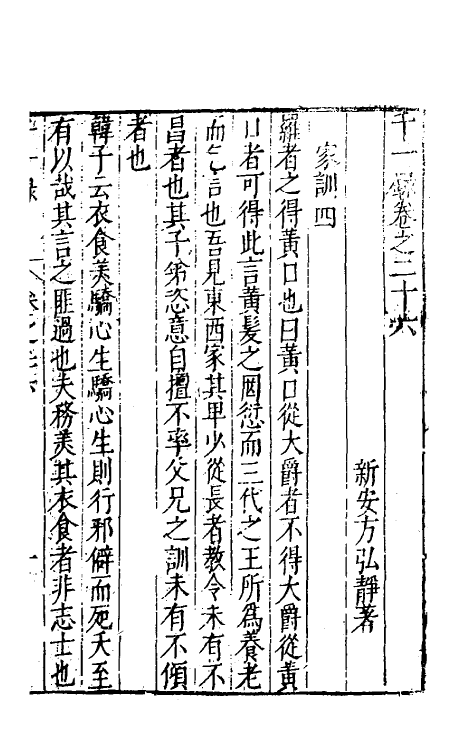 千一錄卷之二十六
新安方弘靜著
家訓四
羅者之得黃口也曰黃口從大爵者不得大爵從黃
口者可得此言黃髮之罔愆而三代之王所爲養老
而乞言也吾見東西家其卑少從長者教令未有不
昌者也其子弟恣意自擅不率父兄之訓未有不傾
者也
韓子云衣食美驕心生驕心生則行邪僻而死夭至
有以哉其言之匪過也夫務美其衣食者非志士也
千一錄
卷之二十六
一